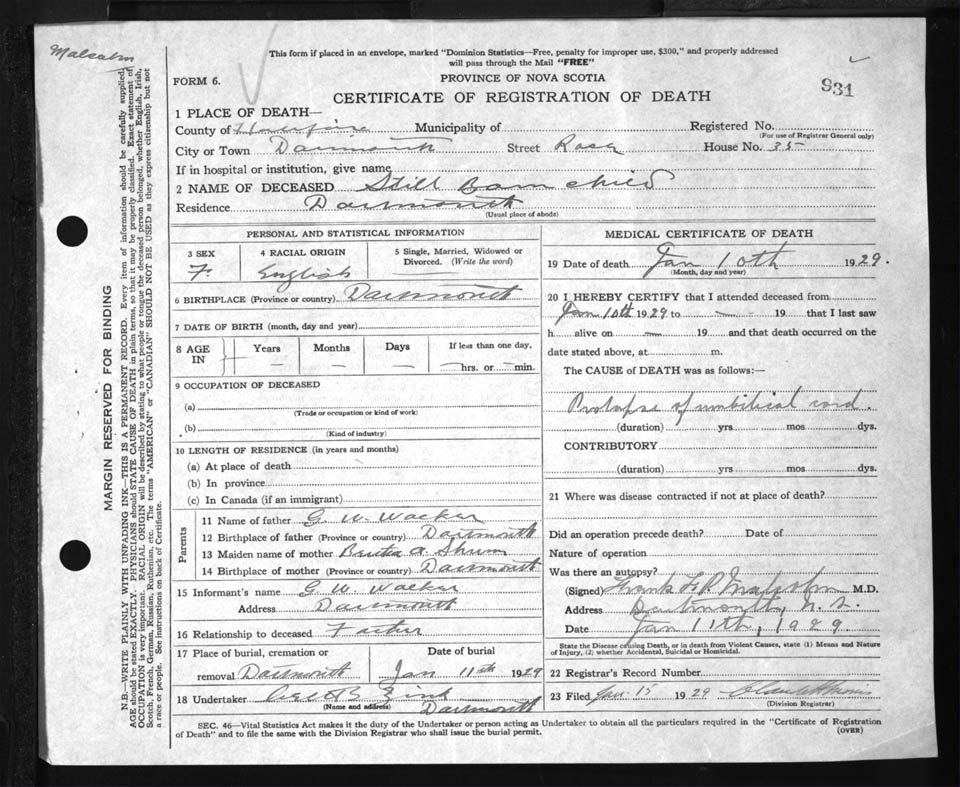 Malcolm
This form if placed in an envelope, marked "Dominion Statistics—Free, penalty for improper use, $300," and properly addressed
will pass through the Mail "FREE"
FORM 6.
PROVINCE OF NOVA SCOTIA
931
CERTIFICATE OF REGISTRATION OF DEATH
1 PLACE OF DEATH—
County of Municipality of Registered No.
(For use of Registrar General only)
City or Town Dartmouth Street Rose House No. 35
If in hospital or institution, give name
2 NAME OF DECEASED Still Born child
Residence Dartmouth
(Usual place of abode)
MARGIN RESERVED FOR BINDING
N.B.—WRITE PLAINLY WITH UNFADING INK—THIS IS A PERMANENT RECORD. Every item of information should be carefully supplied.
AGE should be stated EXACTLY. PHYSICIANS should STATE CAUSE OF DEATH in plain terms, so that it may be properly classified. Exact statement of
OCCUPATION is very important. RACIAL ORIGIN will be described by stating to what people or tongue the deceased person belonged, whether English, Irish,
Scotch, French, German, Russian, Ruthenian, etc. The terms "AMERICAN" or "CANADIAN" SHOULD NOT BE USED as they express citizenship but not
a race or people. See instructions on back of Certificate.
PERSONAL AND STATISTICAL INFORMATION
3 SEX 4 RACIAL ORIGIN 5 Single, Married, Widowed or
Divorced. (Write the word)
F. English
6 BIRTHPLACE (Province or country) Dartmouth
7 DATE OF BIRTH (month, day and year)
8 AGE IN Years Months Days If less than one day,
— — — —hrs. or —min.
9 OCCUPATION OF DECEASED
(a)
(Trade or occupation or kind of work)
(b)
(Kind of industry)
10 LENGTH OF RESIDENCE (in years and months)
(a) At place of death
(b) In province
(c) In Canada (if an immigrant)
Parents
11 Name of father G. W. Walker
12 Birthplace of father (Province or country) Dartmouth
13 Maiden name of mother A.
14 Birthplace of mother (Province or country) Dartmouth
15 Informant's name G W Walker
Address Dartmouth
16 Relationship to deceased Father
17 Place of burial, cremation or Date of burial
removal Dartmouth Jan 11th 1929
18 Undertaker Zink
(Name and address) Dartmouth
MEDICAL CERTIFICATE OF DEATH
19 Date of death Jan 10th 1929.
(Month, day and year)
20 I HEREBY CERTIFY that I attended deceased from
Jan 10th 1929 to — 19 that I last saw
h alive on — 19 and that death occurred on the
date stated above, at m.
The CAUSE of DEATH was as follows:—
Prolapse of umbilical cord.
(duration) yrs mos dys.
CONTRIBUTORY
(duration) yrs mos dys.
21 Where was disease contracted if not at place of death?
Did an operation precede death? Date of
Nature of operation
Was there an autopsy?
(Signed) Frank Malcolm M.D.
Address Dartmouth, N.S.
Date Jan 11th, 1929.
State the Disease causing Death, or in death from Violent Causes, state (1) Means and Nature
of Injury, (2) whether Accidental, Suicidal or Homicidal.
22 Registrar's Record Number
23 Filed Jan. 15 1929
(Division Registrar)
SEC. 46—Vital Statistics Act makes it the duty of the Undertaker or person acting as Undertaker to obtain all the particulars required in the "Certificate of Registration
of Death" and to file the same with the Division Registrar who shall issue the burial permit.
(OVER)